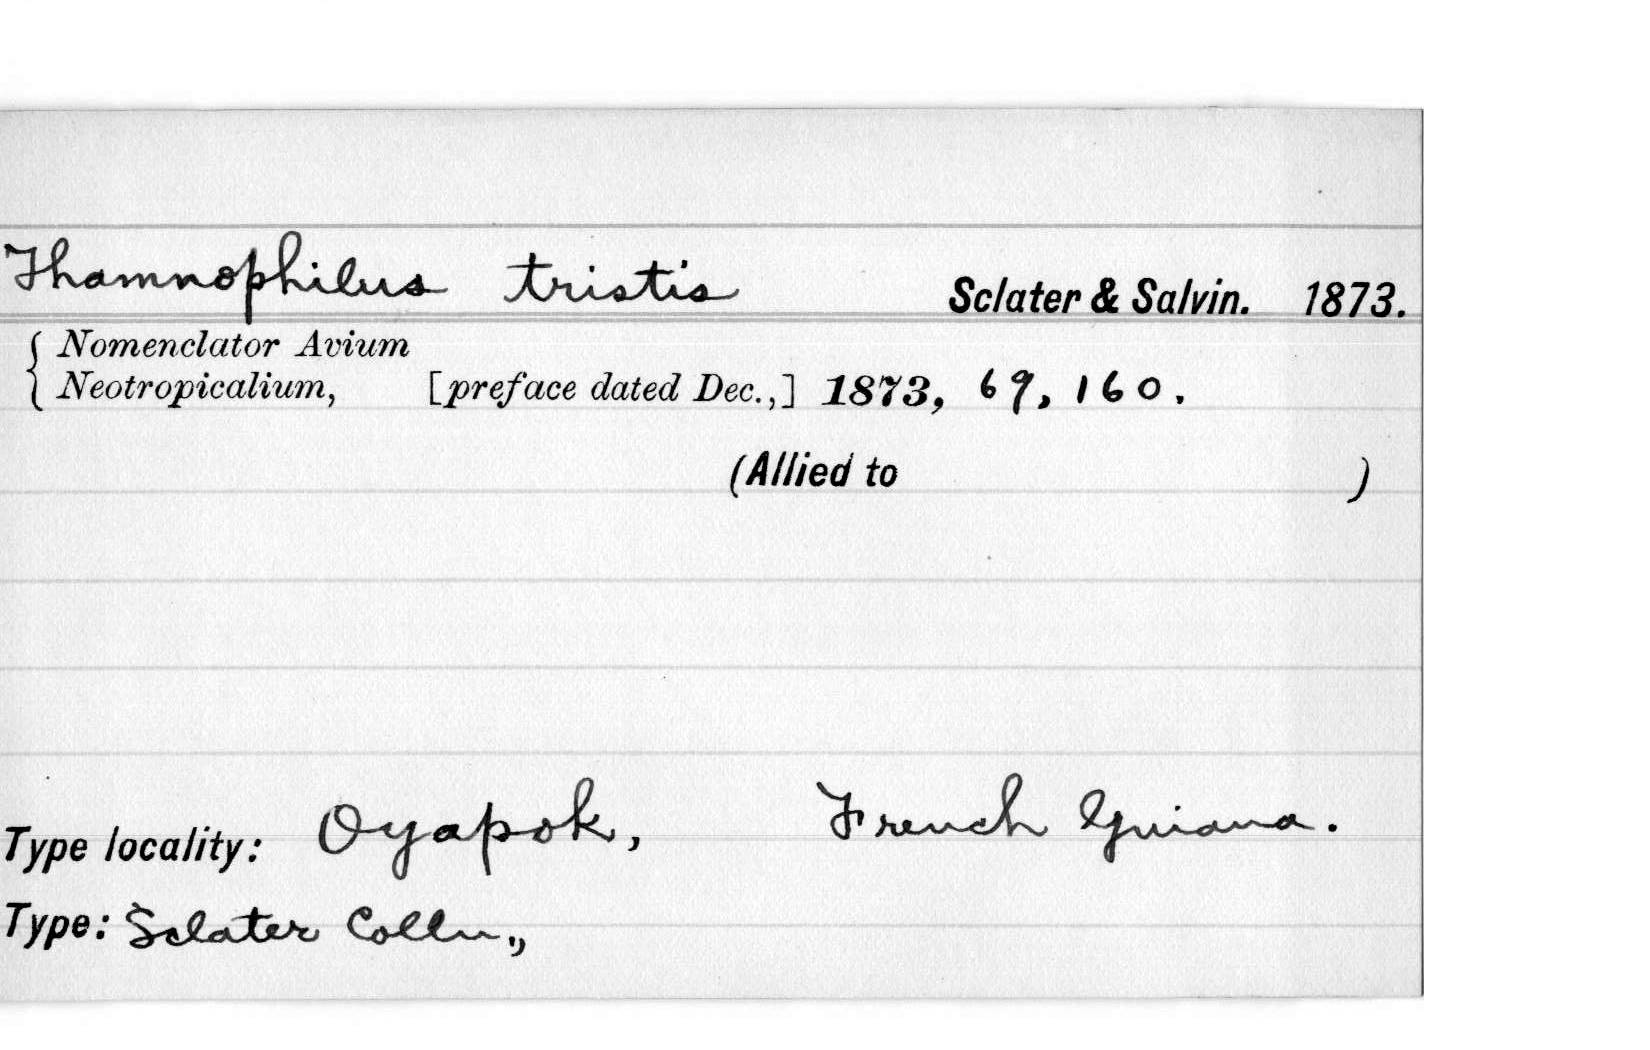 Thamnophilus tristis Sclater & Salvin. 1873.
{ Nomenclator Avium
Neotropicalium, [preface dated Dec.,] 1873, 69, 160.
(Allied to )
Type locality: Oyapok, French Guiana.
Type: Sclater Colln.,